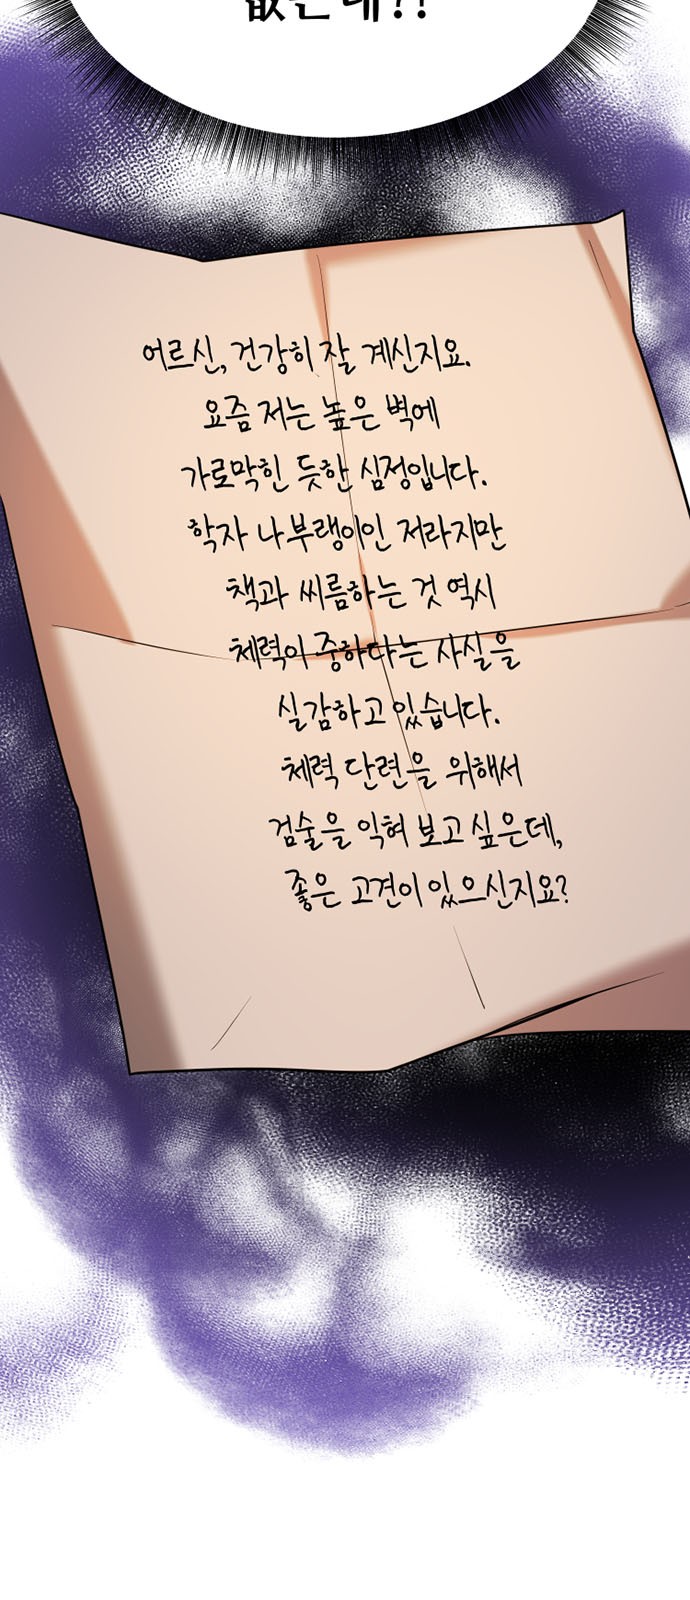 없는데?!
어르신, 건강히 잘 계신지요.
요즘 저는 높은 벽에
가로막힌 듯한 심정입니다.
학자 나부랭이인 저라지만
책과 씨름하는 것 역시
체력이 중하다는 사실을
실감하고 있습니다.
체력 단련을 위해서
검술을 익혀 보고 싶은데,
좋은 고견이 있으신지요?